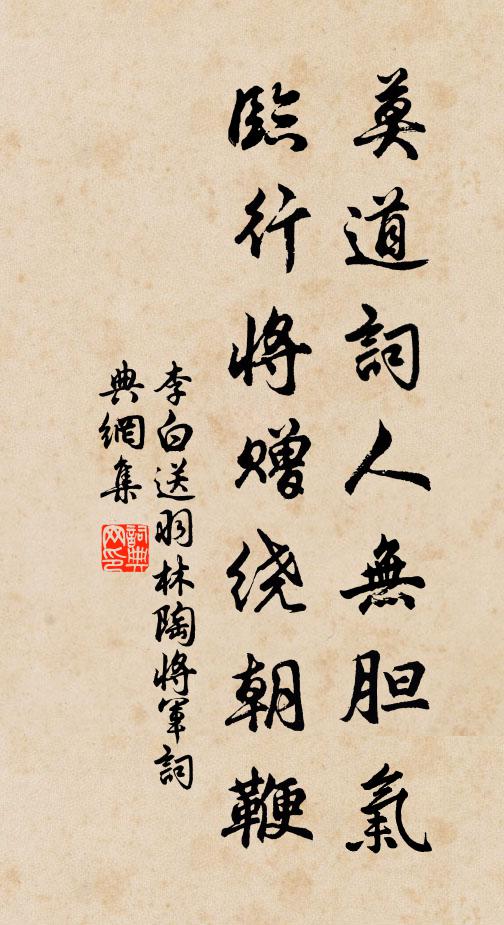 莫道詞人無胆氣
臨行將赠绕朝鞭
李白送羽林陶將軍詞
典網集
詞典
网印